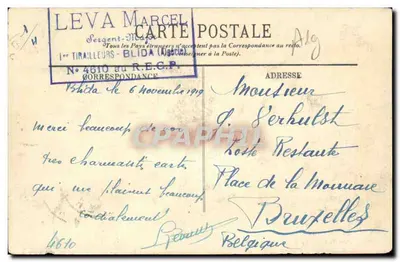 LEVA Marcel
Sergent-Major
1er TIRAILLEURS - BLIDA (Algérie)
No 4610 du R.E.C.P.
CARTE POSTALE
Alg
Tous les Pays étrangers n'acceptent pas la Correspondance au recto.
CORRESPONDANCE
ADRESSE
Blida le 6 Novembre 1919
Merci beaucoup de vos
très charmantes cartes
qui me plaisent beaucoup
Cordialement
4610
Monsieur
G. Verhulst
Poste Restante
Place de la Monnaie
Bruxelles
Belgique
CPARAMA